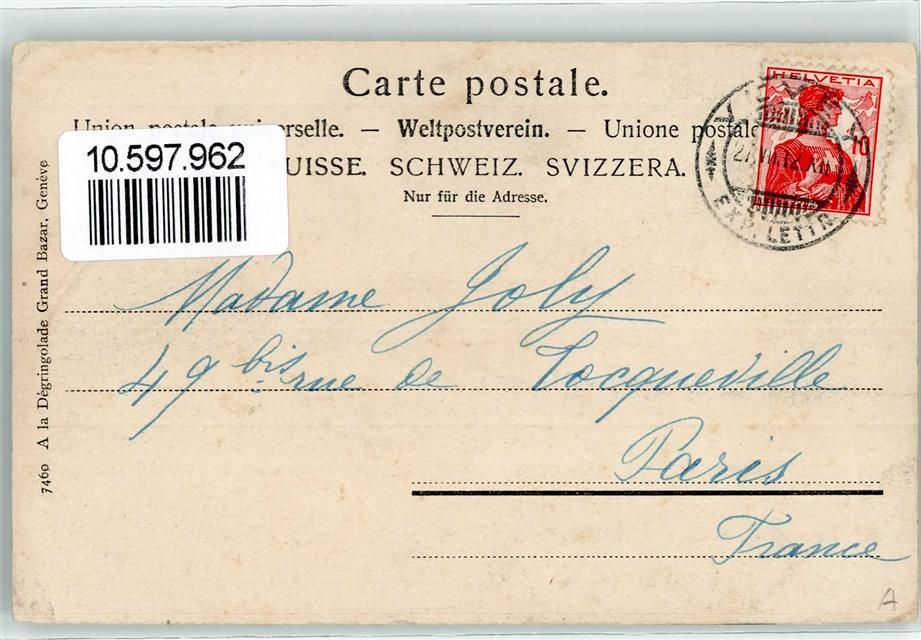 Carte postale.
Union postale universelle. — Weltpostverein. — Unione postale
UISSE. SCHWEIZ. SVIZZERA.
Nur für die Adresse.
10.597.962
HELVETIA
EXP. LETTR.
Madame Joly
49 bis rue de Tocqueville
Paris
France
7460 A la Dégringolade Grand Bazar, Genève
A